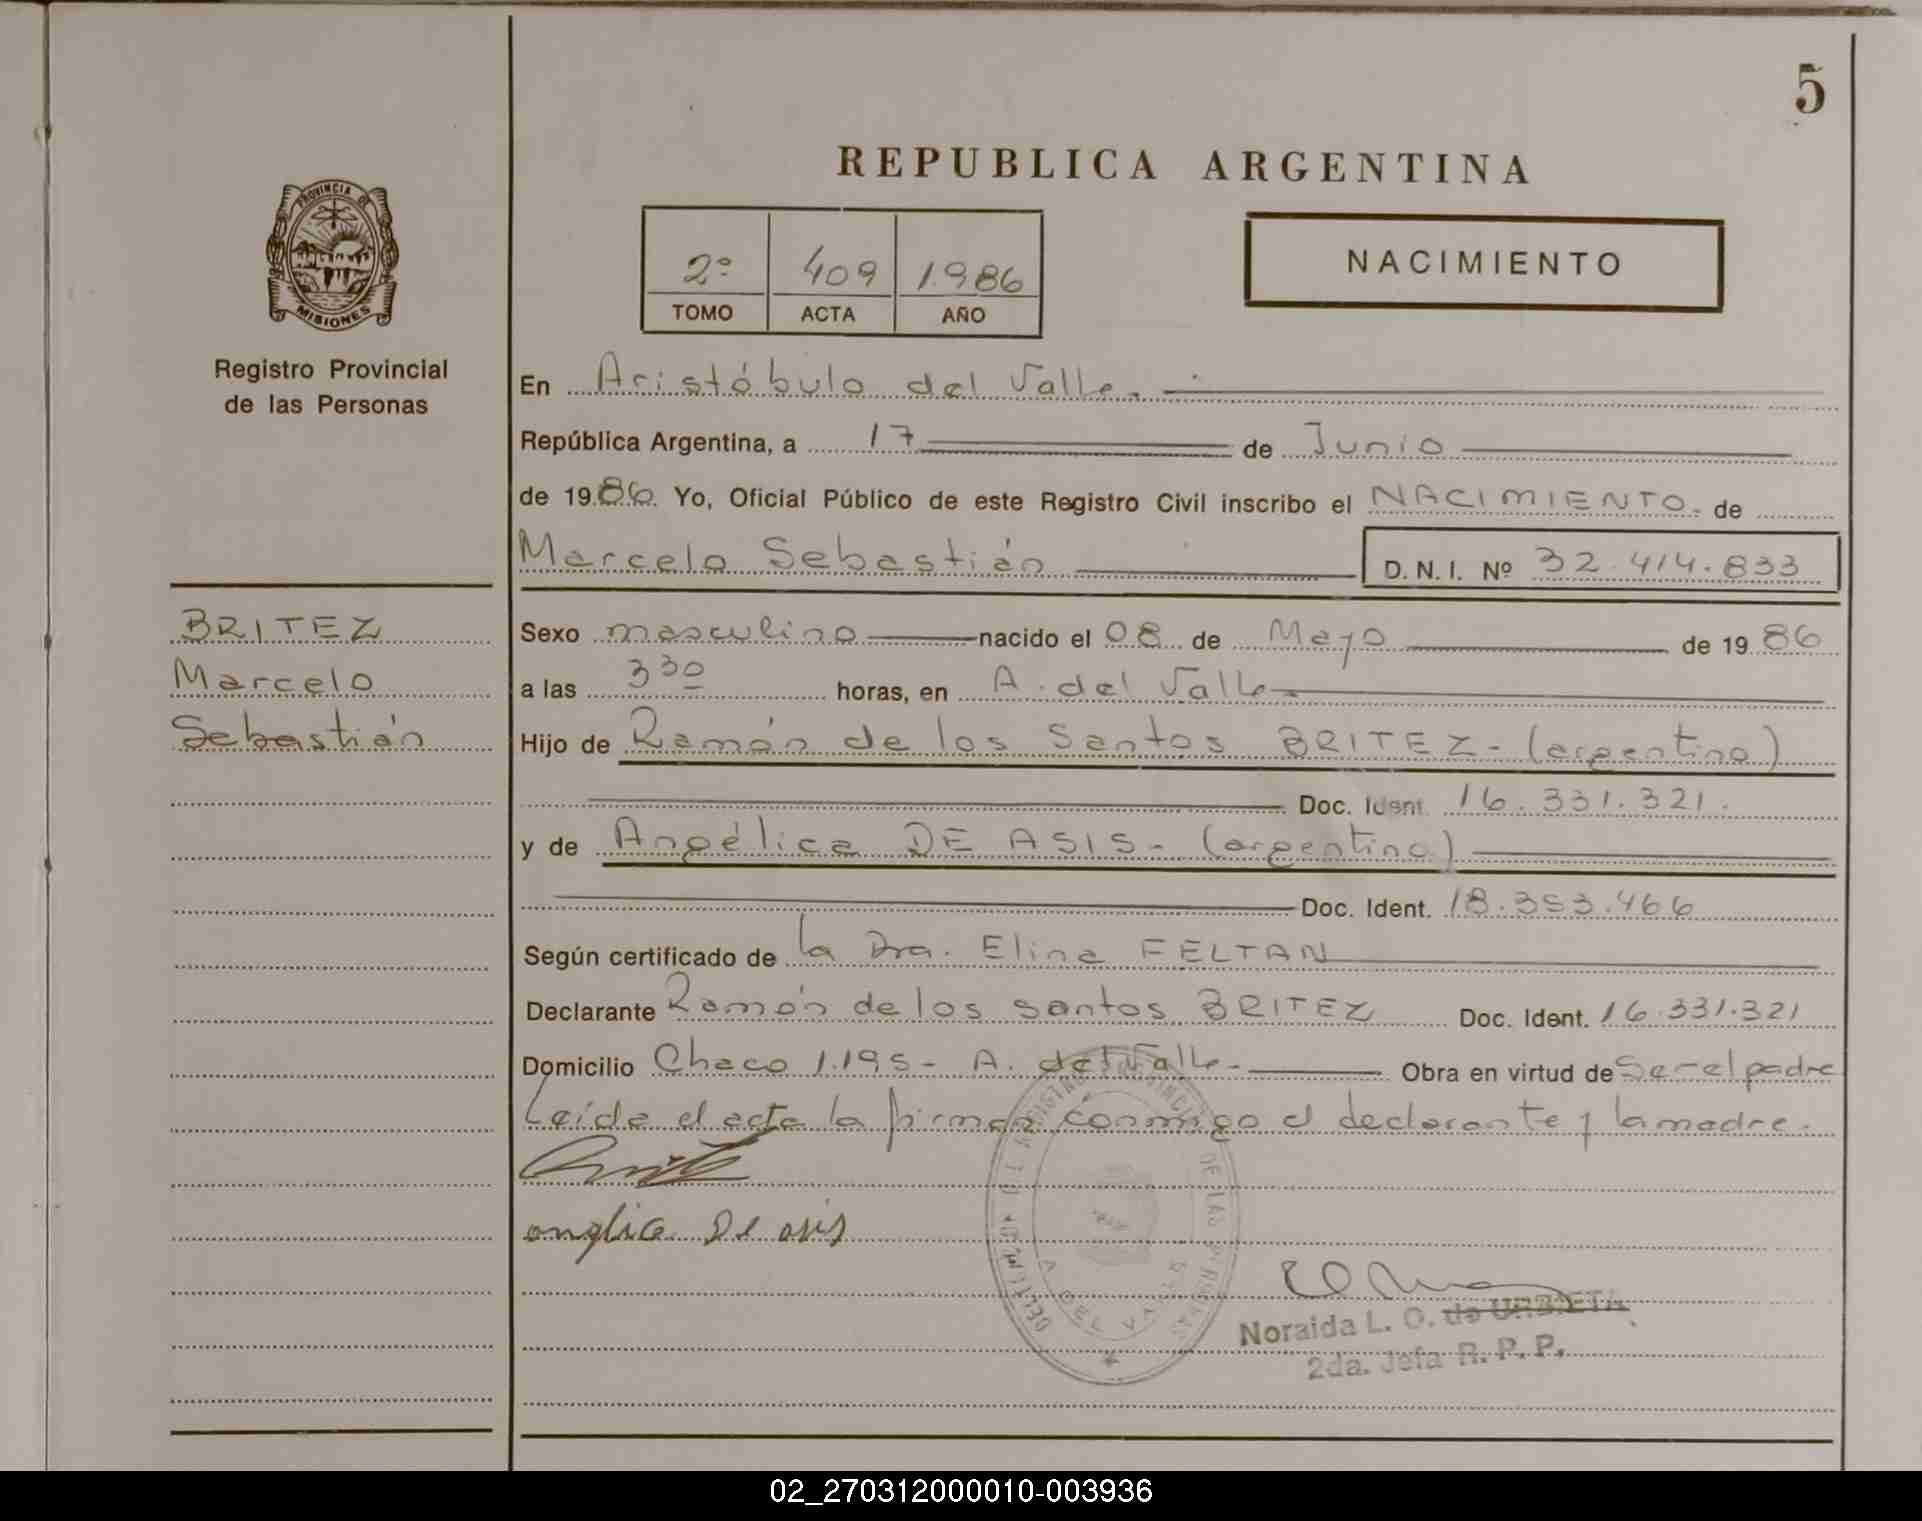 5
REPUBLICA ARGENTINA
PROVINCIA DE
MISIONES
Registro Provincial
de las Personas
2º 409 1.986
TOMO ACTA AÑO
NACIMIENTO
En Aristóbulo del Valle.
República Argentina, a 17 de Junio
de 1986. Yo, Oficial Público de este Registro Civil inscribo el NACIMIENTO. de
Marcelo Sebastián D. N. I. Nº 32.414.833
BRITEZ
Marcelo
Sebastián
Sexo masculino nacido el 08 de Mayo de 1986
a las 3 30 horas, en A. del Valle
Hijo de Ramón de los Santos BRITEZ - (argentino)
Doc. Ident. 16.331.321.
y de Angélica DE ASIS - (argentina)
Doc. Ident. 18.353.466
Según certificado de la Dra. Elina FELTAN
Declarante Ramón de los santos BRITEZ Doc. Ident. 16.331.321
Domicilio Chaco 1.195 - A. del Valle - Obra en virtud de Ser el padre
Leída el acta la firman conmigo el declarante y la madre.
anglica De asis
A. DEL VALLE
Noraida L. O. de URBIETA
2da. Jefa R. P. P.
02_270312000010-003936